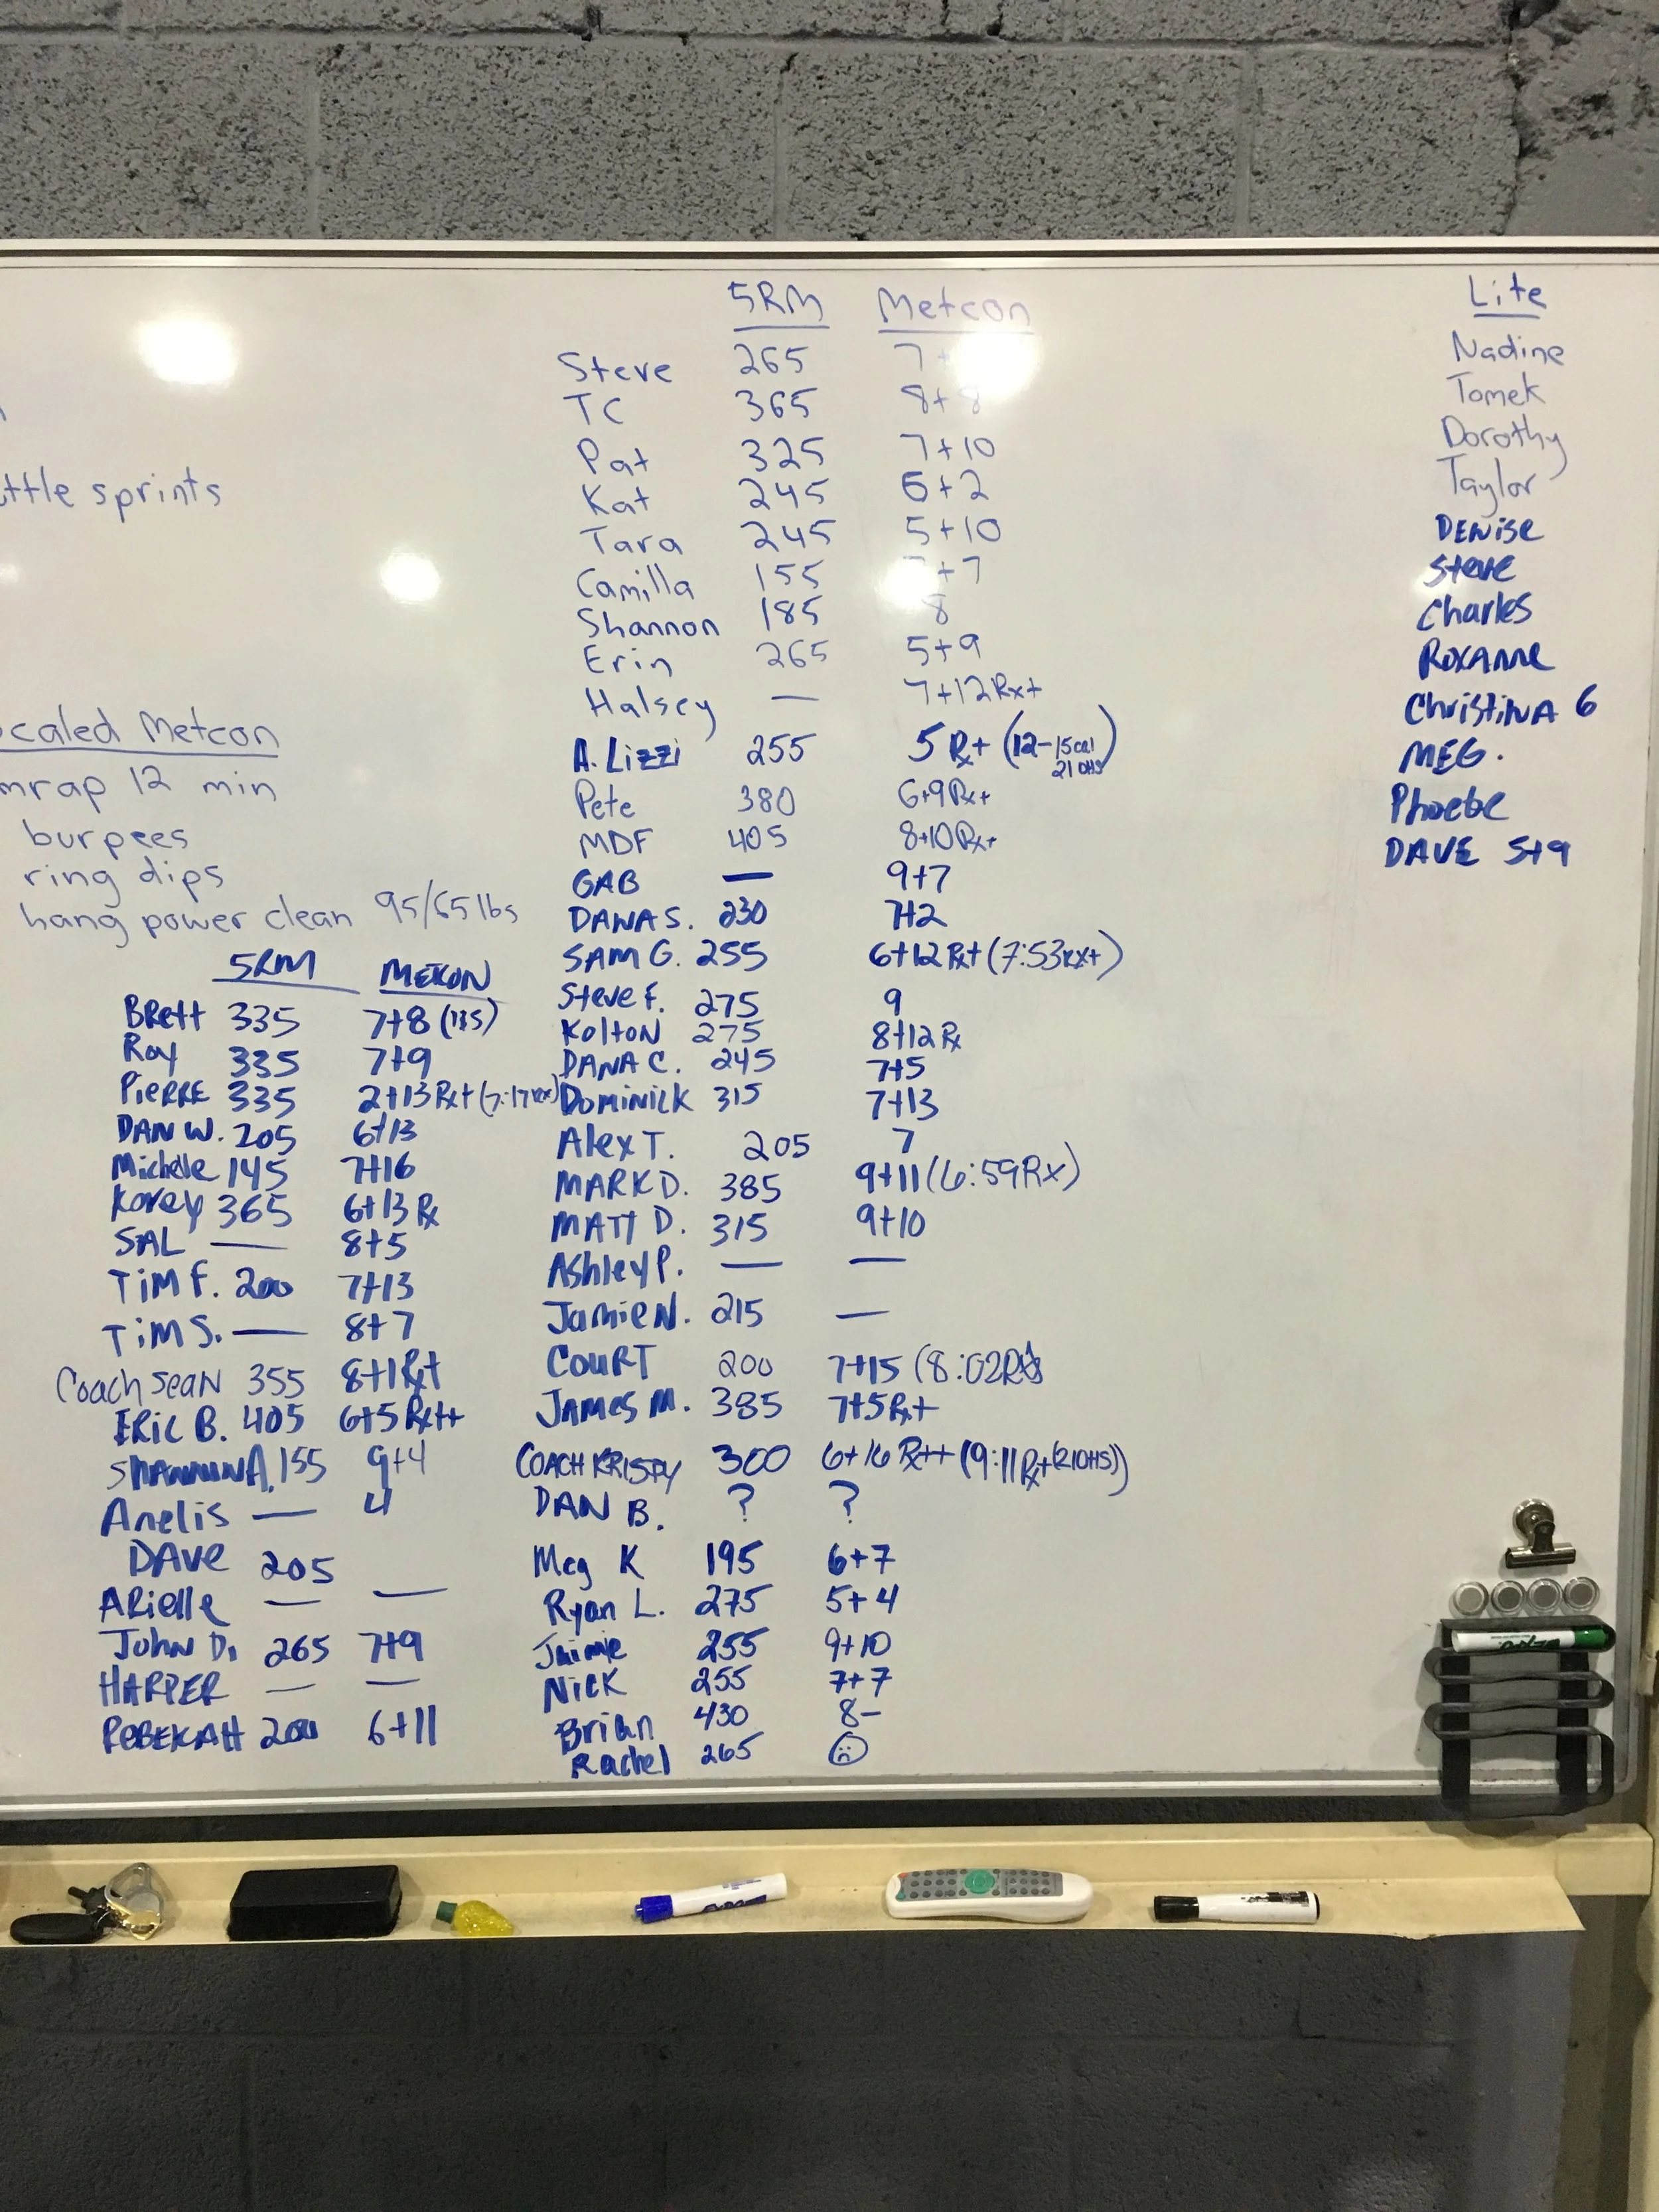 ttle sprints
caled Metcon
mrap 12 min
burpees
ring dips
hang power clean 95/65 lbs
5RM METCON
Brett 335 7+8 (135)
Ray 335 7+9
Pierre 335 2+13 Rx+
DAN W. 205 6+13
Michele 145 7+16
Korey 365 6+13 Rx
SAL — 8+5
TIM F. 200 7+13
TIM S. — 8+7
Coach Sean 355 8+1 Rx+
ERIC B. 405 6+5 Rx++
SHANNON A. 155 9+4
Anelis — 4
DAVE 205
ARielle — —
JOHN D. 265 7+9
HARPER — —
REBEKAH 200 6+11
5RM Metcon
Steve 265 7+
TC 365 8+8
Pat 325 7+10
Kat 245 6+2
Tara 245 5+10
Camilla 155 +7
Shannon 185 8
Erin 265 5+9
Halsey — 7+12 Rx+
A. Lizzi 255 5 Rx+ (12-15cal 21 OHS)
Pete 380 6+9 Rx+
MDF 405 8+10 Rx+
GAB — 9+7
DANA S. 230 7+2
SAM G. 255 6+12 Rx+ (7:53 Rx+)
Steve F. 275 9
Kolton 275 8+12 Rx
DANA C. 245 7+5
DOMINICK 315 7+13
Alex T. 205 7
MARK D. 385 9+11 (6:59 Rx)
MATT D. 315 9+10
Ashley P. — —
Jamie N. 215 —
COURT 200 7+15 (8:02 Rx)
JAMES M. 385 7+5 Rx+
COACH KRISPY 300 6+16 Rx++ (9:11 Rx+ (21 OHS))
DAN B. ? ?
Meg K 195 6+7
Ryan L. 275 5+4
Jaimie 255 9+10
Nick 255 7+7
Brian 430 8-
Rachel 265
Lite
Nadine
Tomek
Dorothy
Taylor
DENISE
Steve
Charles
ROXANNE
CHRISTINA 6
MEG.
Phoebe
DAVE 5+9